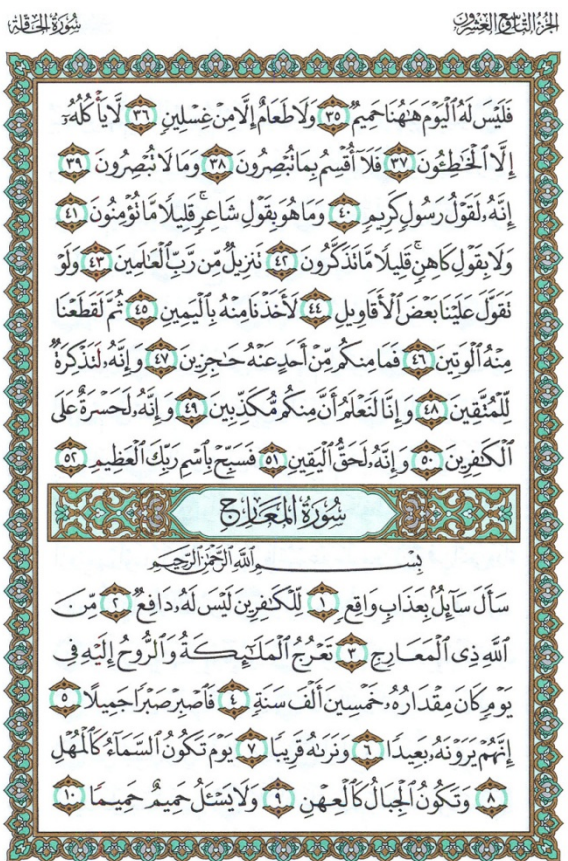 سُورَةُ الحَاقَّةِ
الجُزْءُ التَّاسِعُ وَالعِشْرُونَ
فَلَيْسَ لَهُ ٱلْيَوْمَ هَٰهُنَا حَمِيمٌ ٣٥ وَلَا طَعَامٌ إِلَّا مِنْ غِسْلِينٍ ٣٦ لَّا يَأْكُلُهُۥٓ
إِلَّا ٱلْخَٰطِـُٔونَ ٣٧ فَلَآ أُقْسِمُ بِمَا تُبْصِرُونَ ٣٨ وَمَا لَا تُبْصِرُونَ ٣٩
إِنَّهُۥ لَقَوْلُ رَسُولٍ كَرِيمٍ ٤٠ وَمَا هُوَ بِقَوْلِ شَاعِرٍ ۚ قَلِيلًا مَّا تُؤْمِنُونَ ٤١
وَلَا بِقَوْلِ كَاهِنٍ ۚ قَلِيلًا مَّا تَذَكَّرُونَ ٤٢ تَنزِيلٌ مِّن رَّبِّ ٱلْعَٰلَمِينَ ٤٣ وَلَوْ
تَقَوَّلَ عَلَيْنَا بَعْضَ ٱلْأَقَاوِيلِ ٤٤ لَأَخَذْنَا مِنْهُ بِٱلْيَمِينِ ٤٥ ثُمَّ لَقَطَعْنَا
مِنْهُ ٱلْوَتِينَ ٤٦ فَمَا مِنكُم مِّنْ أَحَدٍ عَنْهُ حَٰجِزِينَ ٤٧ وَإِنَّهُۥ لَتَذْكِرَةٌ
لِّلْمُتَّقِينَ ٤٨ وَإِنَّا لَنَعْلَمُ أَنَّ مِنكُم مُّكَذِّبِينَ ٤٩ وَإِنَّهُۥ لَحَسْرَةٌ عَلَى
ٱلْكَٰفِرِينَ ٥٠ وَإِنَّهُۥ لَحَقُّ ٱلْيَقِينِ ٥١ فَسَبِّحْ بِٱسْمِ رَبِّكَ ٱلْعَظِيمِ ٥٢
سُورَةُ المَعَارِجِ
بِسْمِ ٱللَّهِ ٱلرَّحْمَٰنِ ٱلرَّحِيمِ
سَأَلَ سَآئِلٌۢ بِعَذَابٍ وَاقِعٍ ١ لِّلْكَٰفِرِينَ لَيْسَ لَهُۥ دَافِعٌ ٢ مِّنَ
ٱللَّهِ ذِى ٱلْمَعَارِجِ ٣ تَعْرُجُ ٱلْمَلَٰٓئِكَةُ وَٱلرُّوحُ إِلَيْهِ فِى
يَوْمٍ كَانَ مِقْدَارُهُۥ خَمْسِينَ أَلْفَ سَنَةٍ ٤ فَٱصْبِرْ صَبْرًا جَمِيلًا ٥
إِنَّهُمْ يَرَوْنَهُۥ بَعِيدًا ٦ وَنَرَىٰهُ قَرِيبًا ٧ يَوْمَ تَكُونُ ٱلسَّمَآءُ كَٱلْمُهْلِ
٨ وَتَكُونُ ٱلْجِبَالُ كَٱلْعِهْنِ ٩ وَلَا يَسْـَٔلُ حَمِيمٌ حَمِيمًا ١٠